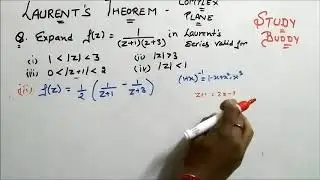 LAURENT'S THEOREM - COMPLEX PLANE
STUDY BUDDY
Q. Expand f(z) = 1/((z+1)(z+3)) in Laurent's
Series valid for
(i) 1 < |z| < 3 (ii) |z| > 3
(iii) 0 < |z+1| < 2 (iv) |z| < 1
f(z) = 1/2 (1/(z+1) - 1/(z+3))
(1+x)⁻¹ = 1-x+x²-x³